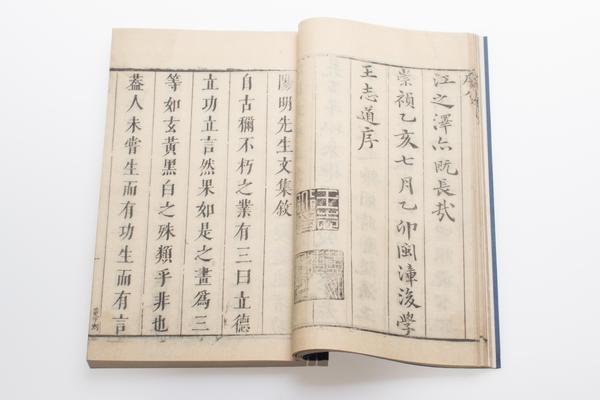 江之澤亦既長哉
崇禎乙亥七月乙卯閩漳後學
王志道序
陽明先生文集敘
自古稱不朽之業有三曰立德
立功立言然果如是之畫為三
等如玄黃黑白之殊類乎非也
蓋人未嘗生而有功生而有言